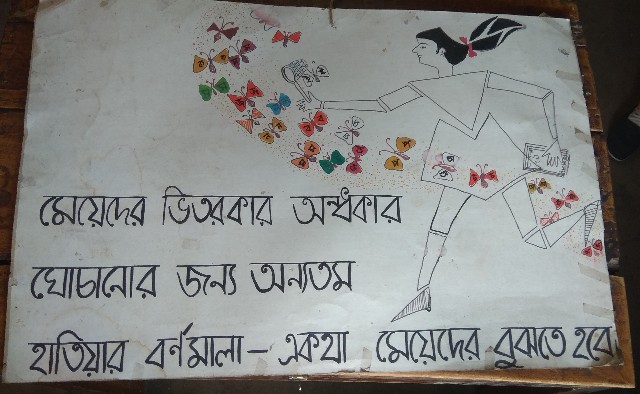 মেয়েদের ভিতরকার অন্ধকার
ঘোচানোর জন্য অন্যতম
হাতিয়ার বর্ণমালা - একথা মেয়েদের বুঝতে হবে